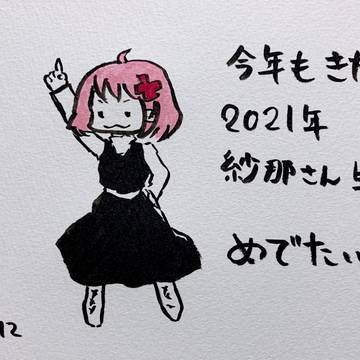 今年もきた
2021年
紗那さん
めでたい
12